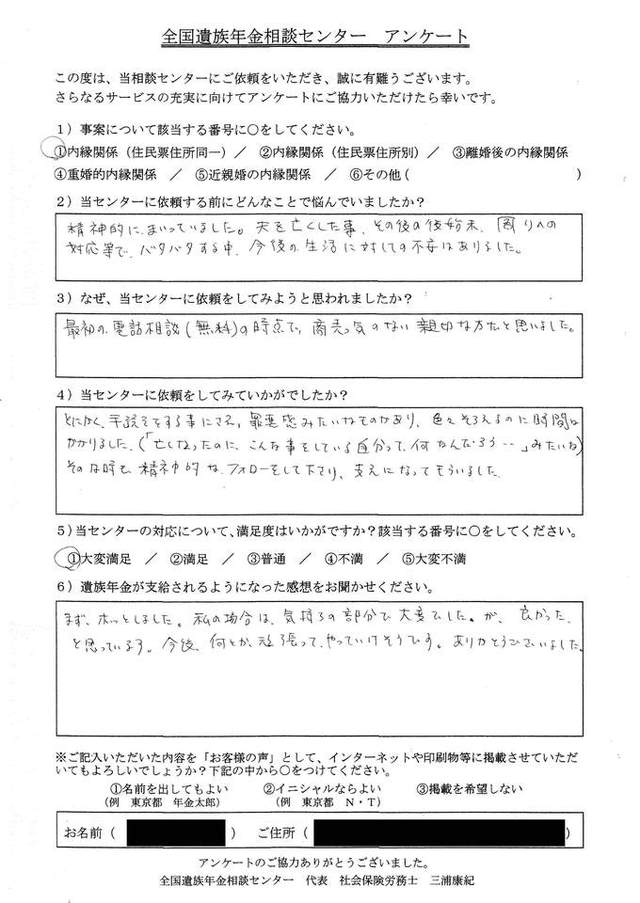 全国遺族年金相談センター　アンケート
この度は、当相談センターにご依頼をいただき、誠に有難うございます。
さらなるサービスの充実に向けてアンケートにご協力いただけたら幸いです。
1）事案について該当する番号に○をしてください。
①内縁関係（住民票住所同一）／　②内縁関係（住民票住所別）／　③離婚後の内縁関係
④重婚的内縁関係　／　⑤近親婚の内縁関係　／　⑥その他（　　　　　　　　　　）
2）当センターに依頼する前にどんなことで悩んでいましたか？
精神的に、まいっていました。夫を亡くした事、その後の後始末、周りへの
対応等で、バタバタする中、今後の生活に対しての不安はありました。
3）なぜ、当センターに依頼をしてみようと思われましたか？
最初の電話相談（無料）の時点で、商売っ気のない親切な方だと思いました。
4）当センターに依頼をしてみていかがでしたか？
とにかく、手続きをする事にさえ、罪悪感みたいなものがあり、色々そろえるのに時間は
かかりました。（「亡くなったのに、こんな事をしている自分って、何なんだろう…」みたいな）
そんな時も、精神的な、フォローをして下さり、支えになってもらいました。
5）当センターの対応について、満足度はいかがですか？該当する番号に○をしてください。
①大変満足　／　②満足　／　③普通　／　④不満　／　⑤大変不満
6）遺族年金が支給されるようになった感想をお聞かせください。
まず、ホッとしました。私の場合は、気持ちの部分で大変でした。が、良かった、
と思っています。今後、何とか、頑張って、やっていけそうです。ありがとうございました。
※ご記入いただいた内容を「お客様の声」として、インターネットや印刷物等に掲載させていただ
いてもよろしいでしょうか？下記の中から○をつけてください。
①名前を出してもよい　　②イニシャルならよい　　③掲載を希望しない
（例　東京都　年金太郎）　（例　東京都　N・T）
お名前（　　　　　　）　ご住所（　　　　　　　　　　　　）
アンケートのご協力ありがとうございました。
全国遺族年金相談センター　代表　社会保険労務士　三浦康紀